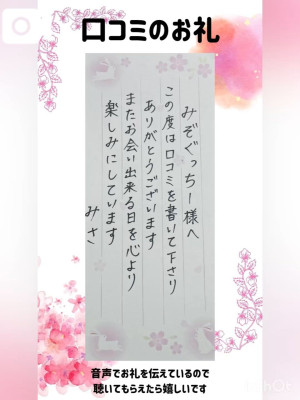 口コミのお礼
みぞぐっちー様へ
この度は口コミを書いて下さり
ありがとうございます
またお会い出来る日を心より
楽しみにしています
みさ
音声でお礼を伝えているので
聴いてもらえたら嬉しいです